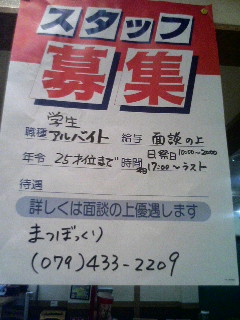 スタッフ
募集
学生
職種 アルバイト 給与 面談の上
年令 25才位まで 時間 日祭日10:00~20:00
17:00~ラスト
待遇
詳しくは面談の上優遇します
まつぼっくり
(079)433-2209